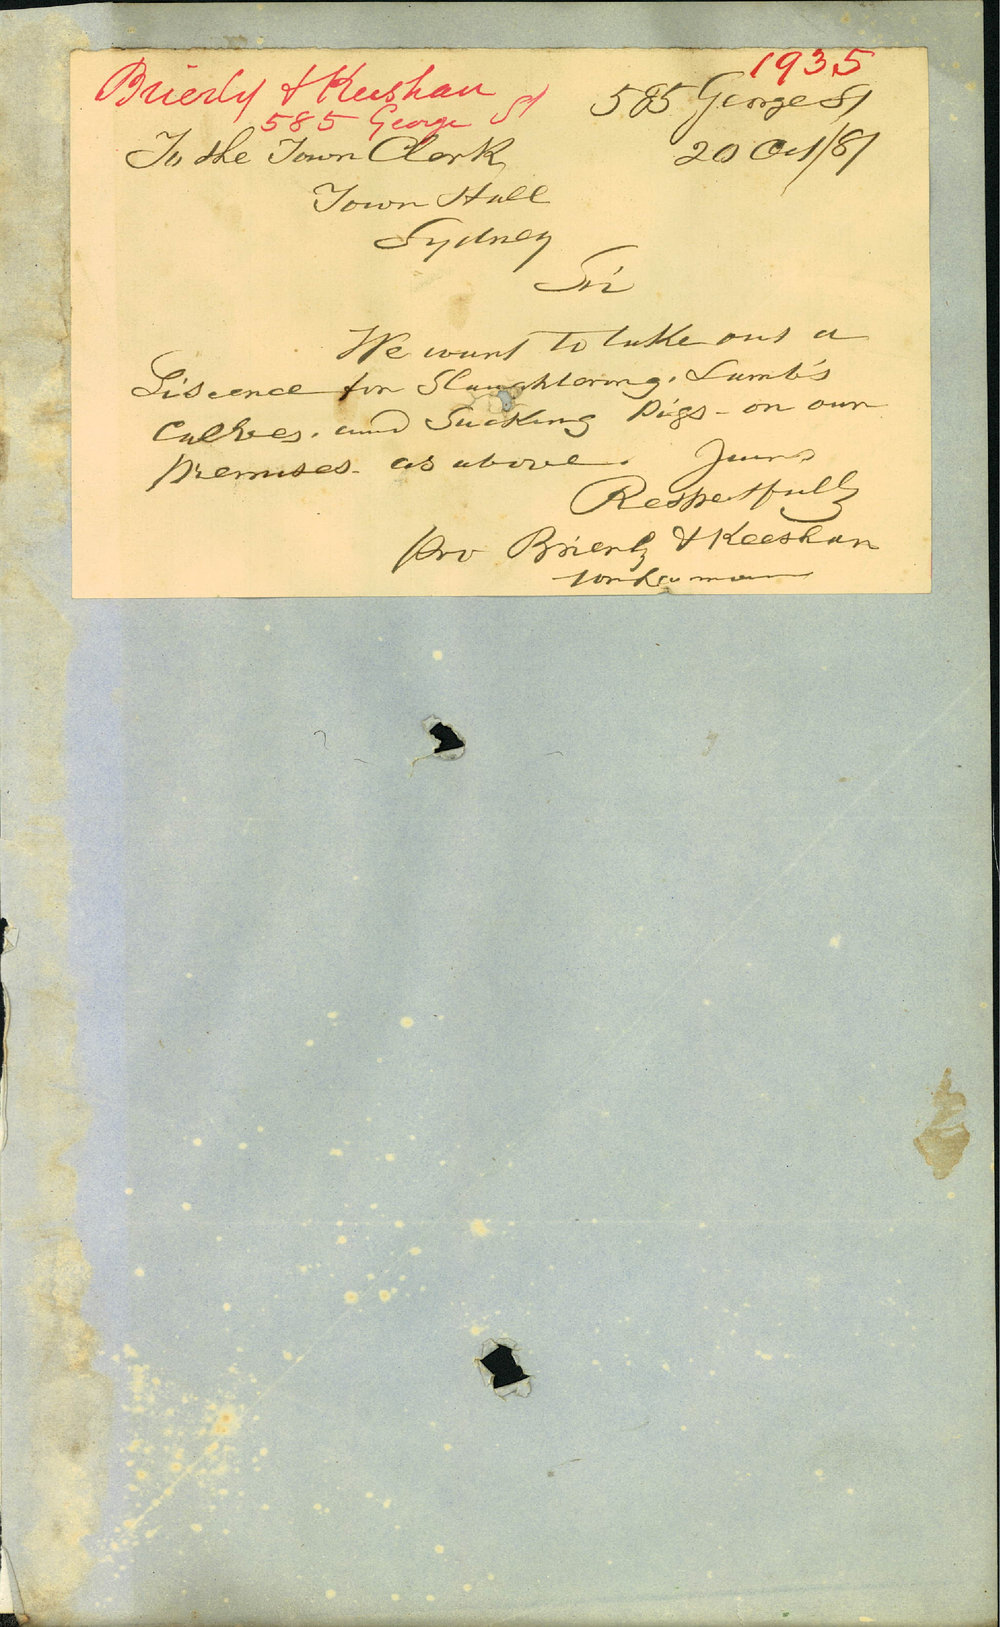 1935
Brierly & Keeshan
585 George St
585 George St
20 Oct/81
To the Town Clerk
Town Hall
Sydney
Sir
We want to take out a
Liscence for Slaughtering. Lamb's
Calkves. and Sucking Pigs - on our
premises. as above. Yours
Respetfully
pro Brierly & Keeshan